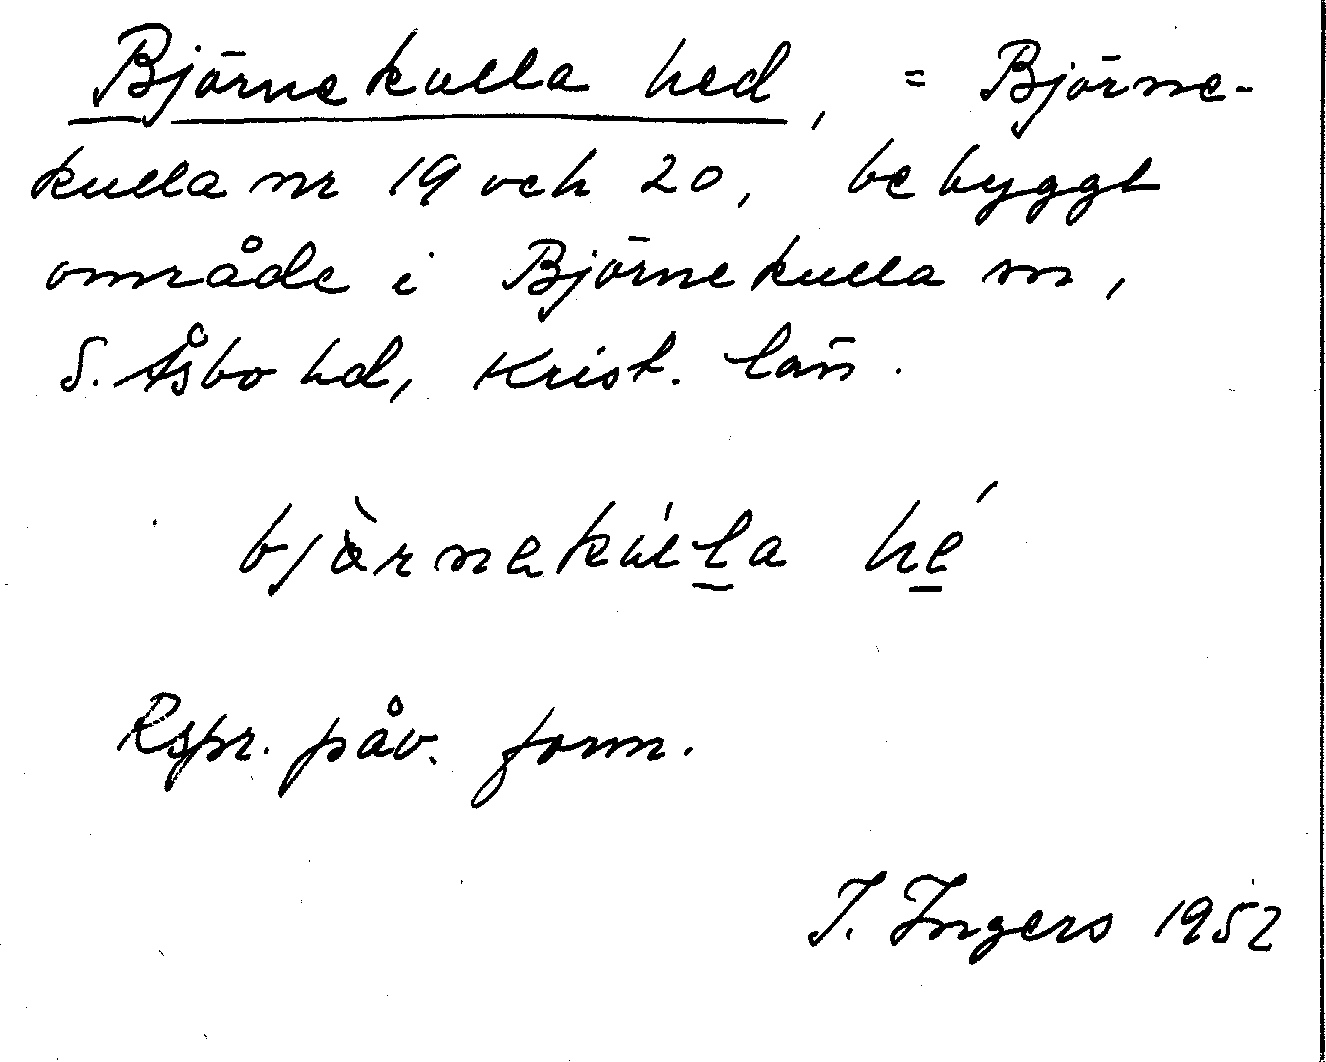 Björnekulla hed, = Björne-
kulla nr 19 och 20, bebyggt
område i Björnekulla sn,
S. Åsbo hd, Krist. län.
bjò̀rnekúl̲a hé̲
Rspr. påv. form.
I. Ingers 1952